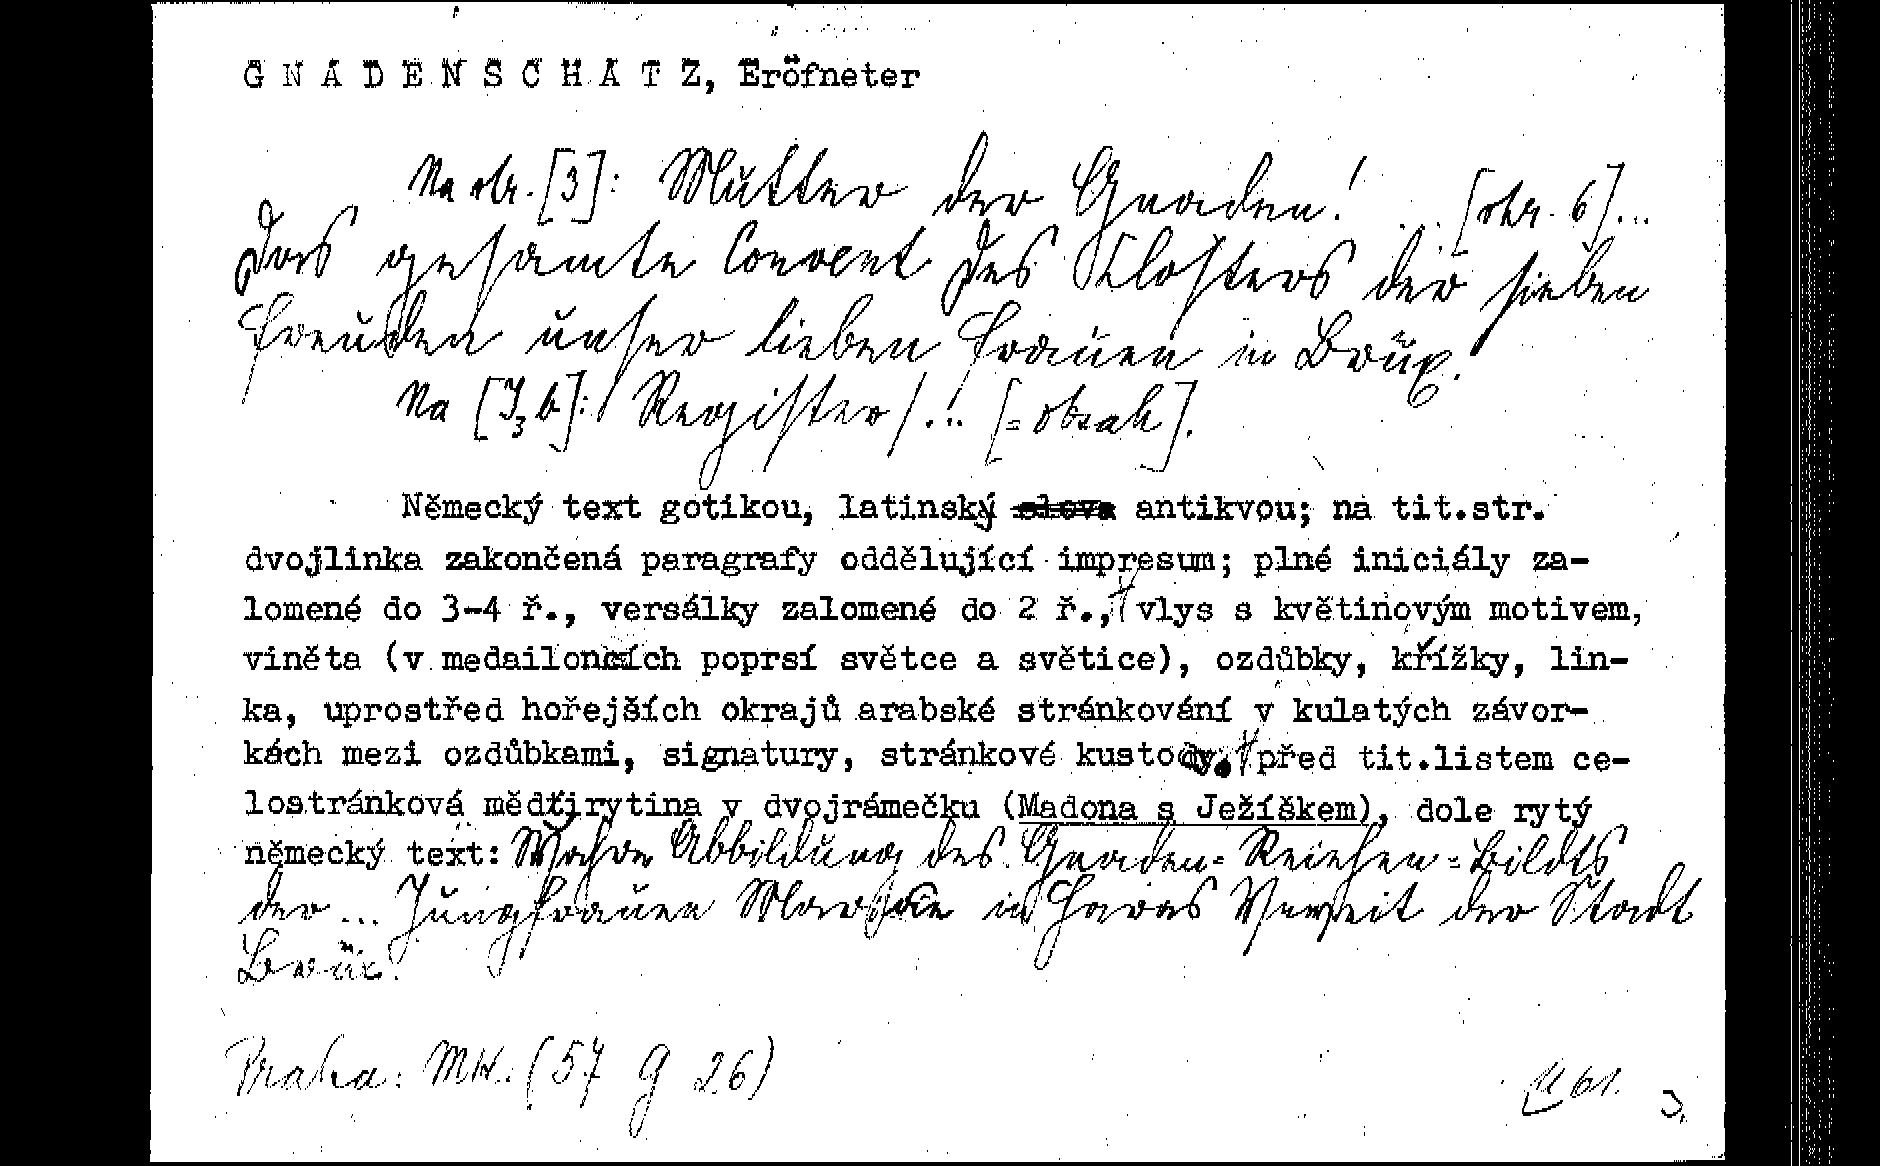 G N A D E N S C H A T Z, Eröfneter
Na str. [3]: Mutter der Gnaden! ... [str. 6]...
Das gesamte Convent des Klosters der sieben
Freuden unser lieben Frauen in Brüx.
Na [J3b]: Register/... [=obsah].
Německý text gotikou, latinský antikvou; na tit.str.
dvojlinka zakončená paragrafy oddělující impresum; plné iniciály za-
lomené do 3-4 ř., versálky zalomené do 2 ř., vlys s květinovým motivem,
viněta (v medailoncích poprsí světce a světice), ozdůbky, křížky, lin-
ka, uprostřed hořejších okrajů arabské stránkování v kulatých závor-
kách mezi ozdůbkami, signatury, stránkové kustody. před tit.listem ce-
lostránková mědirytina v dvojrámečku (Madona s Ježíškem), dole rytý
německý text: Abbildung des Gnaden-Reichen-Bildts
der ... Jungfrauen Mariae in der Stadt
Brüx.
Praha: MK. (57 g 26)
61.